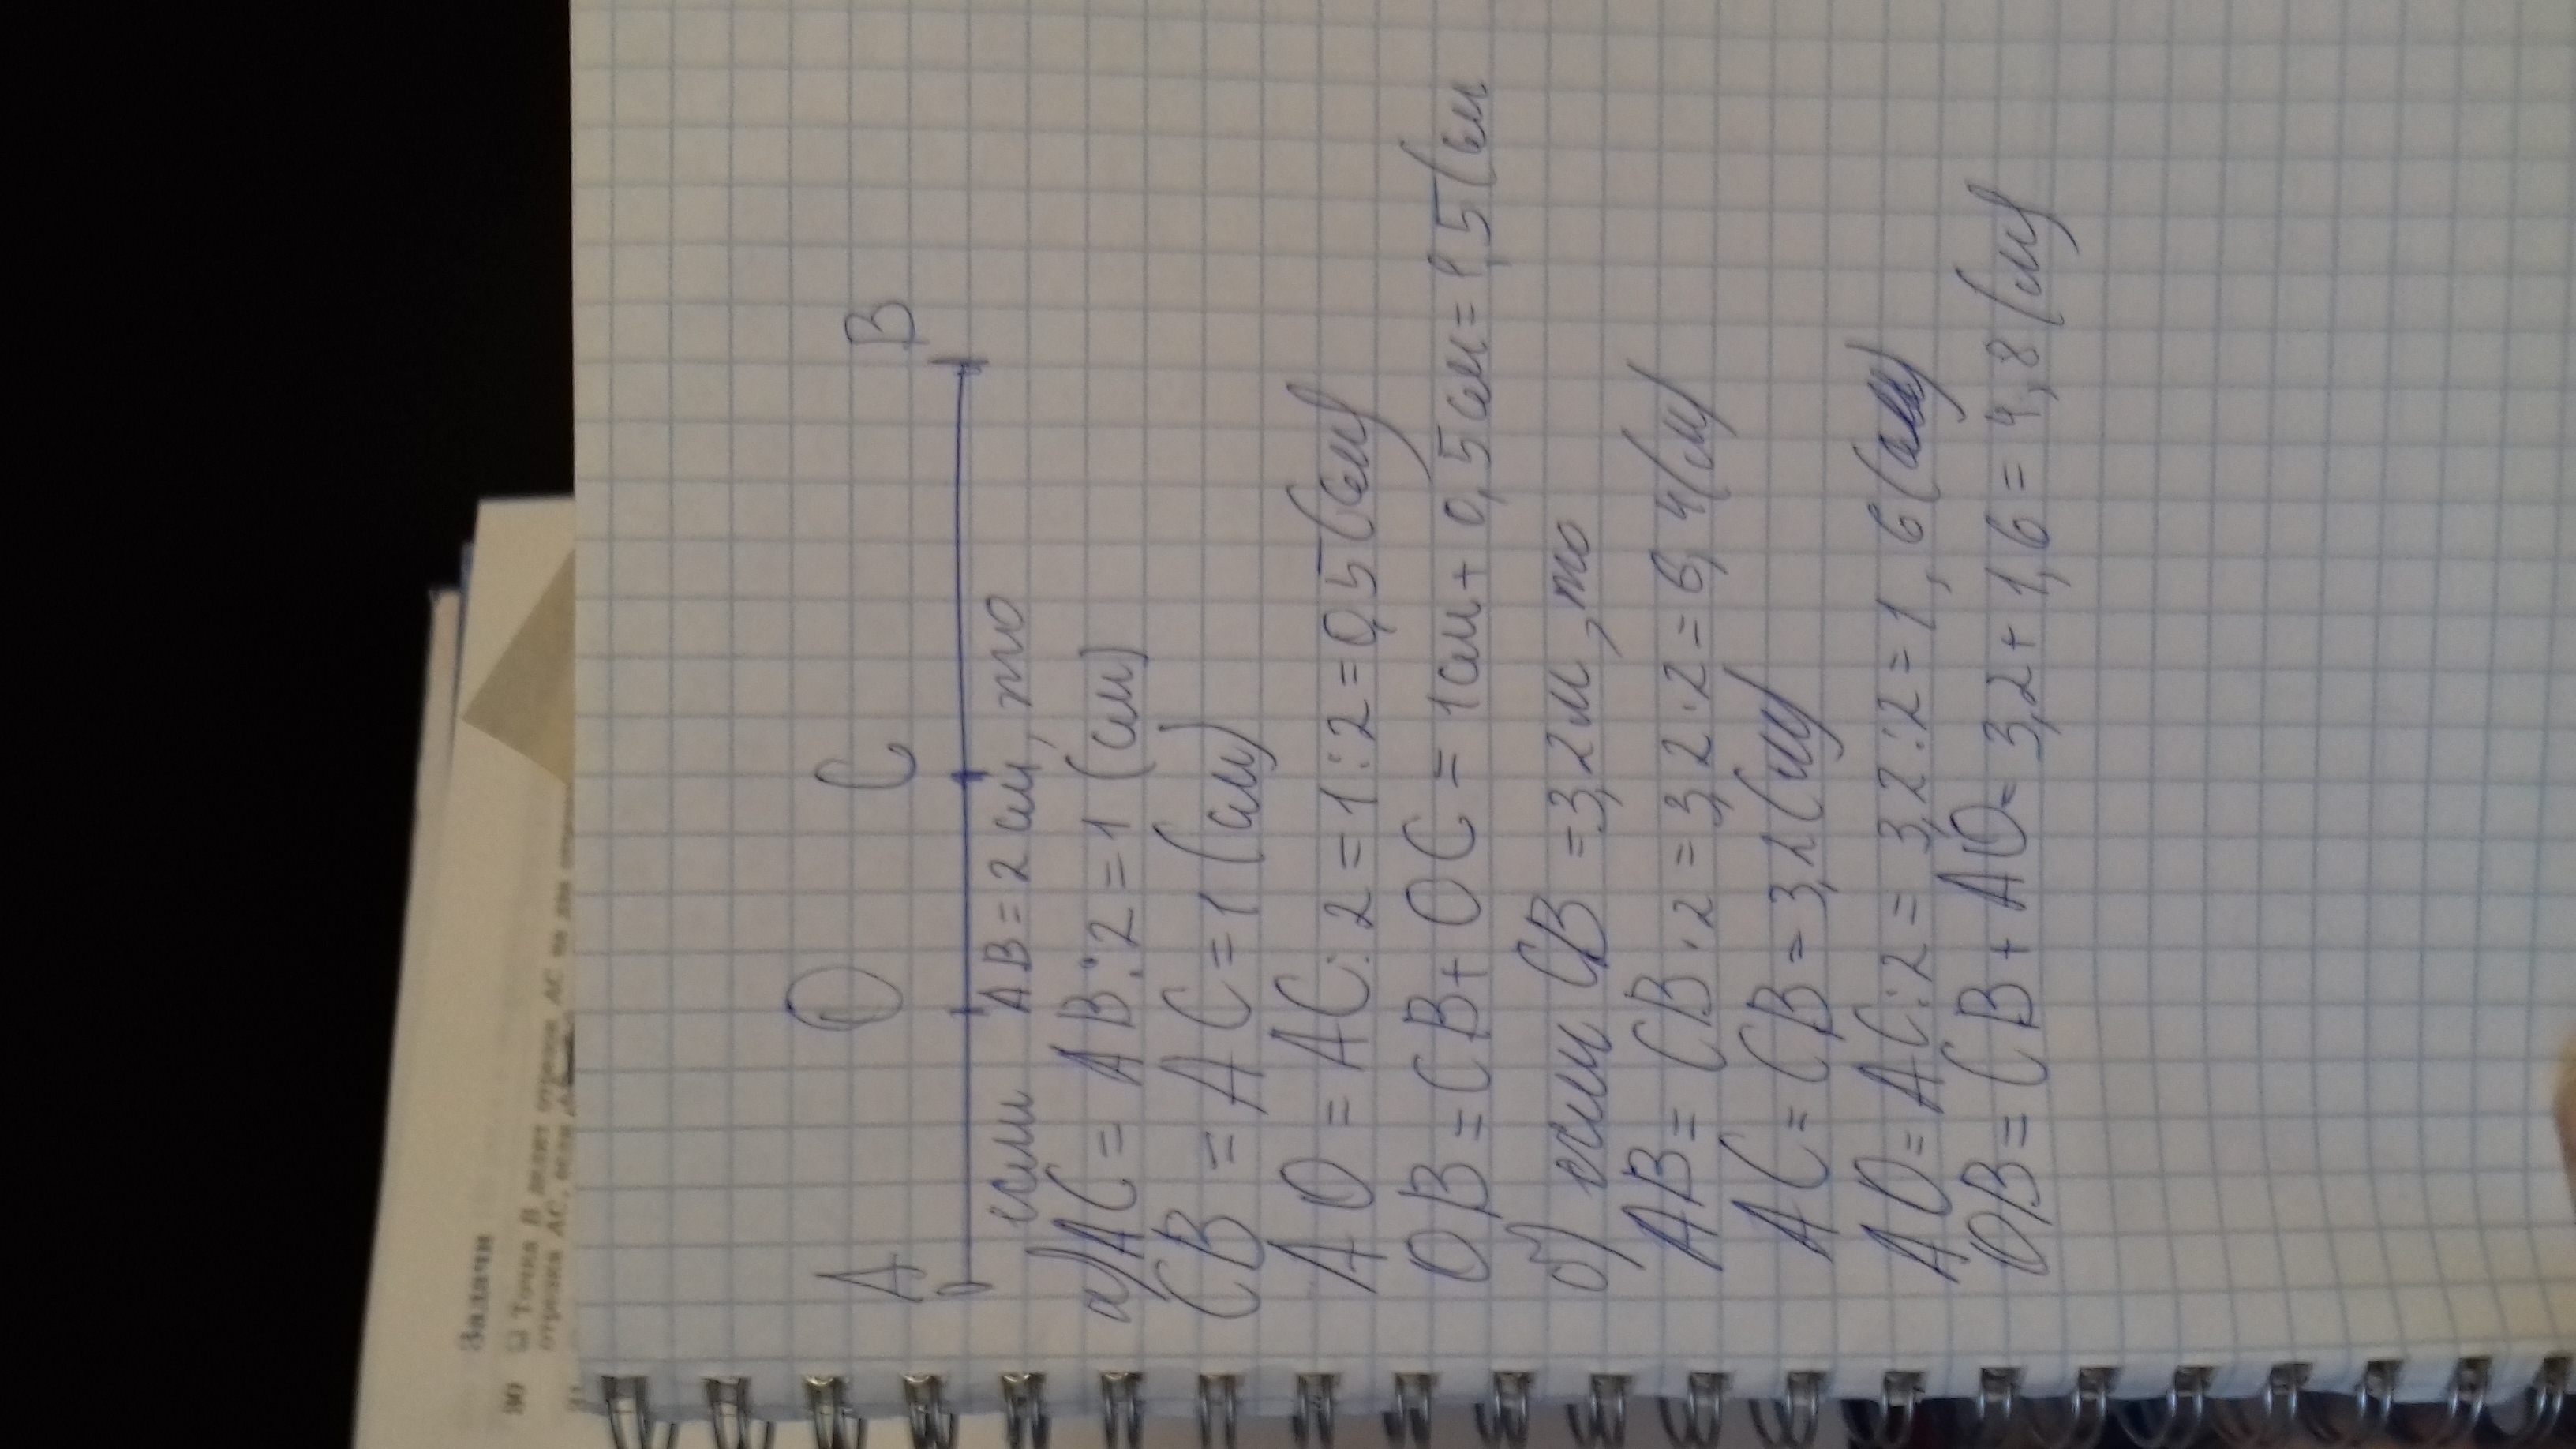 Задачи
30 Точка B делит отрезок AC на два
отрезка AC, если
A O C B
если AB = 2 см, то
а) AC = AB : 2 = 1 (см)
CB = AC = 1 (см)
AO = AC : 2 = 1 : 2 = 0,5 (см)
OB = CB + OC = 1 см + 0,5 см = 1,5 (см
б) если CB = 3,2 м, то
AB = CB · 2 = 3,2 · 2 = 6,4 (м)
AC = CB = 3,2 (м)
AO = AC : 2 = 3,2 : 2 = 1,6 (м)
OB = CB + AO = 3,2 + 1,6 = 4,8 (м)